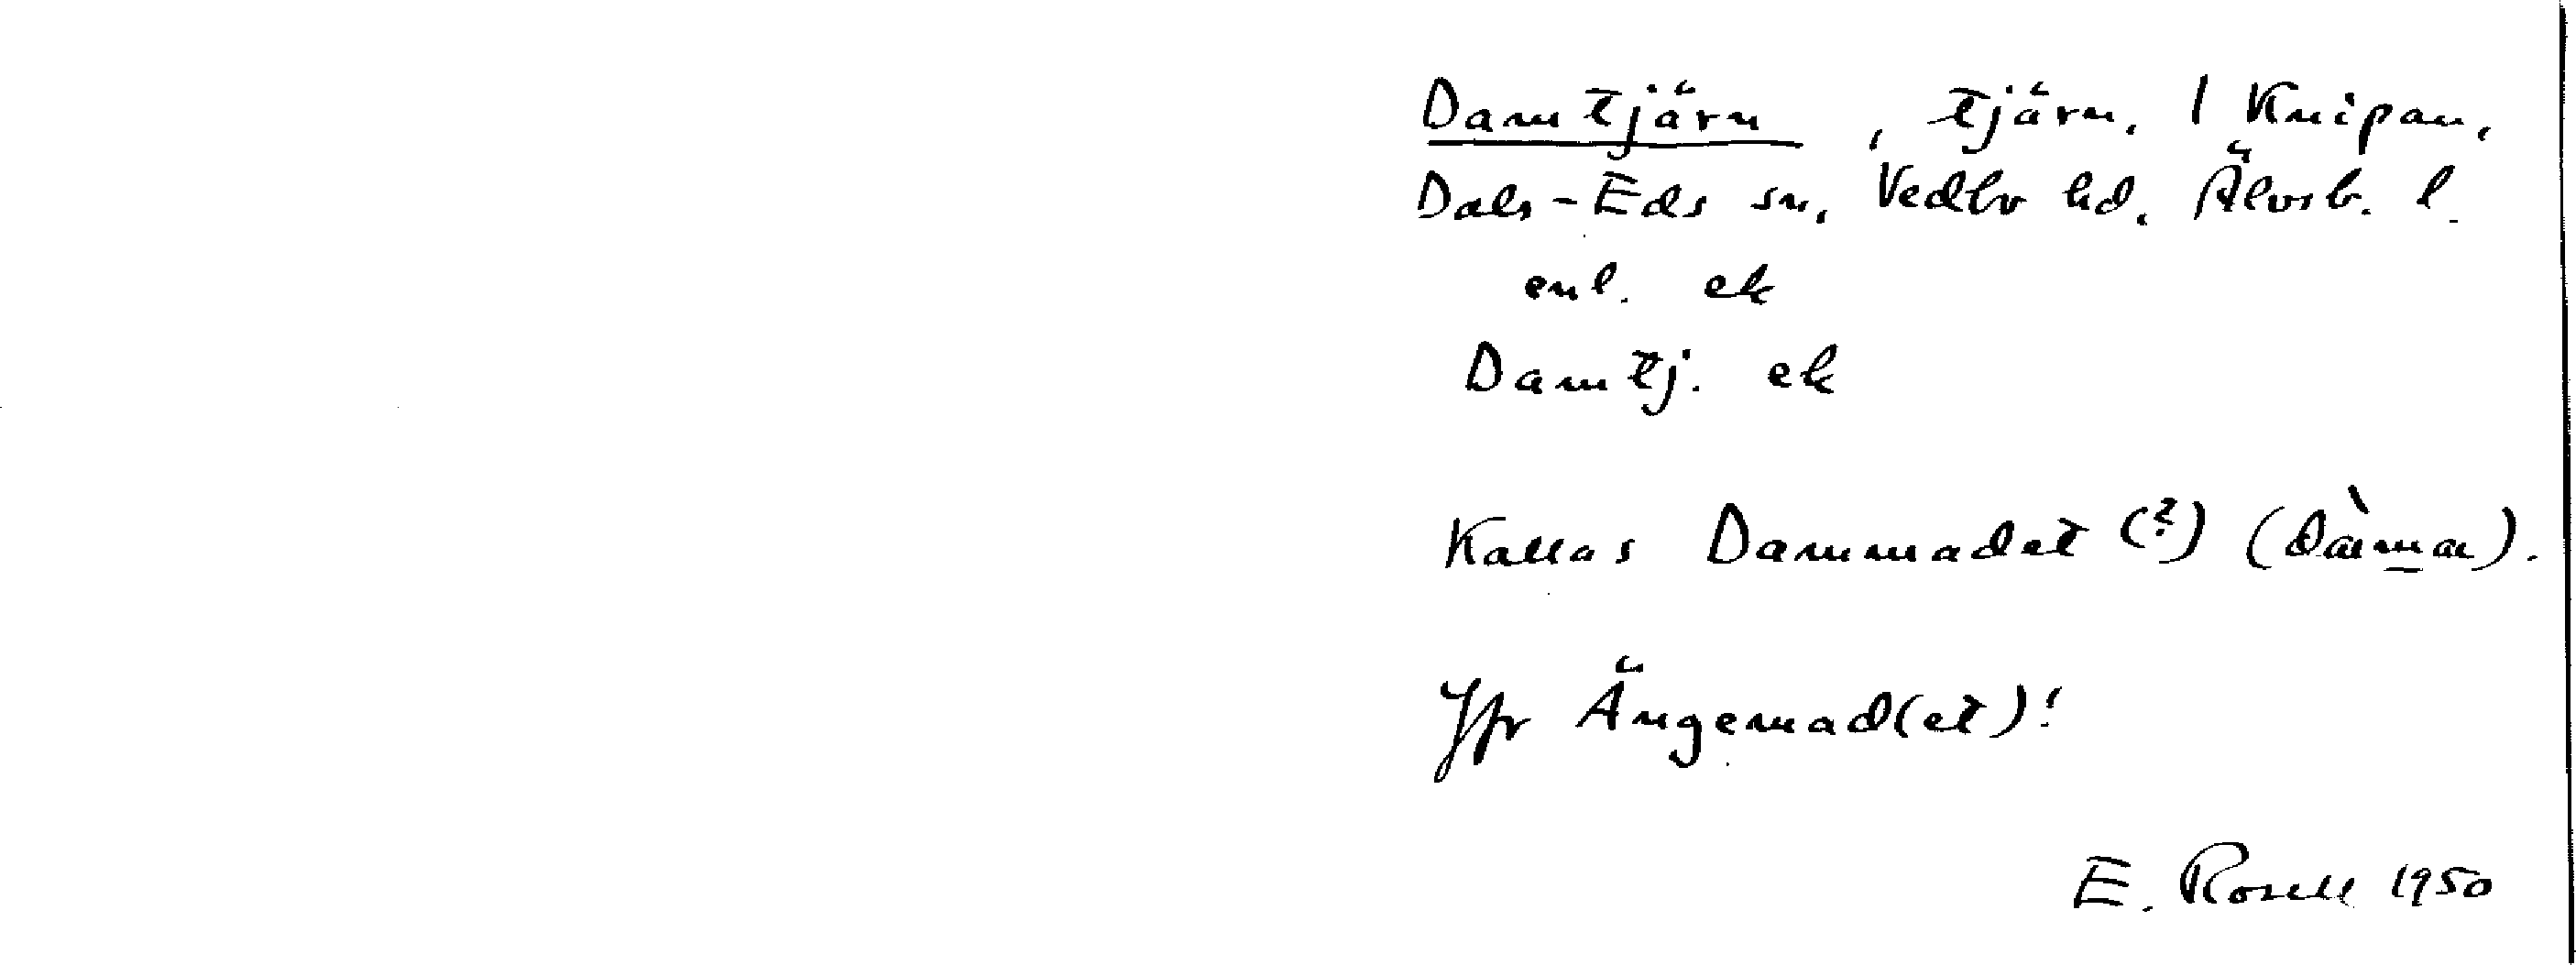 Damtjärn, tjärn, 1 Knipan,
Dals-Eds sn, Vedbo hd, Älvsb. l.
enl. ek
Damtj. ek
Kallas Dammadet (?) (dàma).
Jfr Ängemad(et)!
E. Rosell 1950